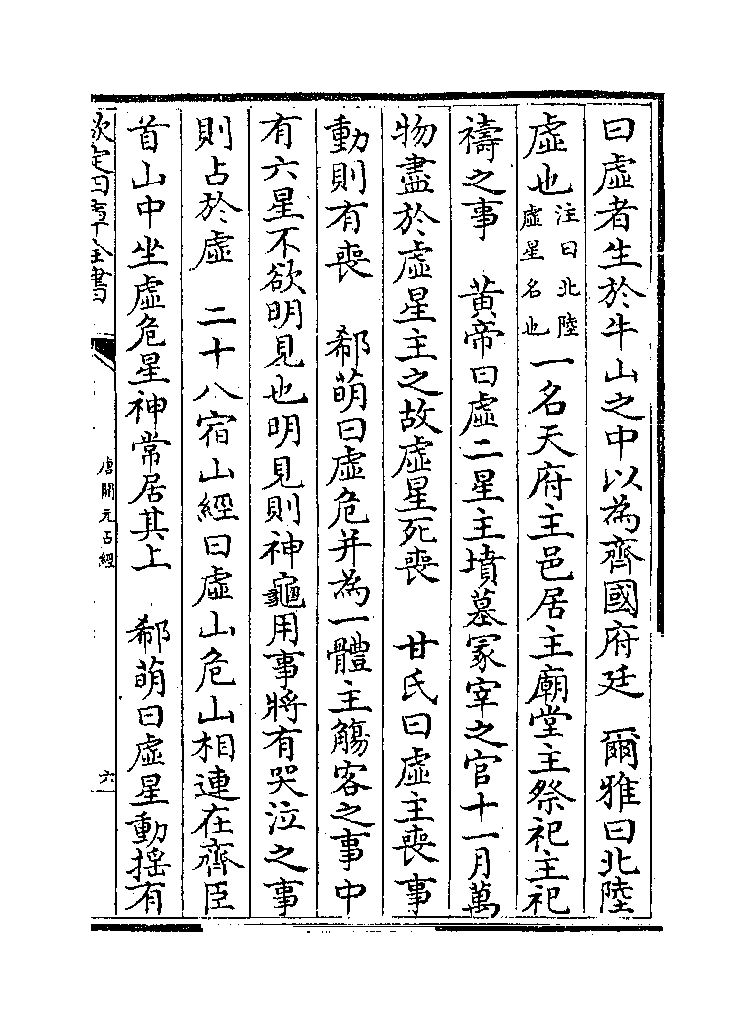 曰虛者生於牛山之中以為齊國府廷　爾雅曰北陸
虛也注曰北陸虛星名也一名天府主邑居主廟堂主祭祀主祀
禱之事　黃帝曰虛二星主墳墓冢宰之官十一月萬
物盡於虛星主之故虛星死喪　甘氏曰虛主喪事
動則有喪　郗萌曰虛危并為一體主觴客之事中
有六星不欲明見也明見則神龜用事將有哭泣之事
則占於虛　二十八宿山經曰虛山危山相連在齊臣
首山中坐虛危星神常居其上　郗萌曰虛星動揺有
欽定四庫全書
唐開元占經
六